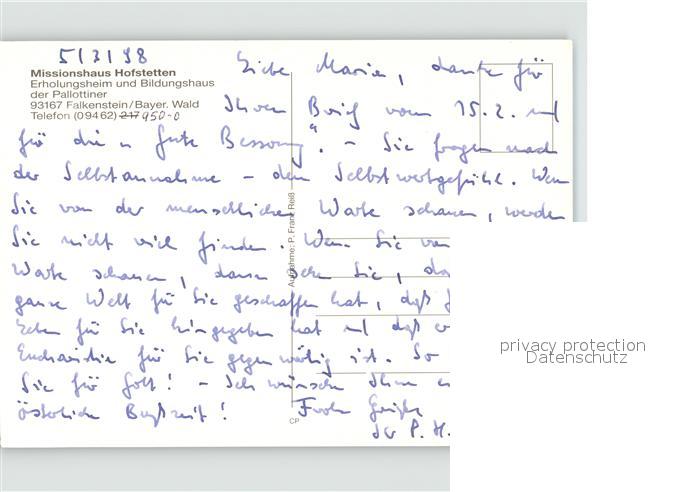 5/3/98
Missionshaus Hofstetten
Erholungsheim und Bildungshaus
der Pallottiner
93167 Falkenstein/Bayer. Wald
Telefon (09462) 217 950-0
Liebe Maria, danke für
Ihren Brief vom 15.2. und
für die "gute Besserung". - Sie fragen nach
der Selbstannahme - dem Selbstwertgefühl. Wenn
Sie von der menschlichen Warte schauen, werden
Sie nicht viel finden. Wenn Sie von
Warte schauen, dann sehen Sie, da
ganze Welt für Sie geschaffen hat, daß
Leben für Sie hingegeben hat und daß er
Eucharistie für Sie gegenwärtig ist. So
Sie für Gott! - Ich wünsche Ihnen
österliche Bußzeit! Frohe Grüße
Ihr P. H.
Aufnahme: P. Franz Reiß
CP
privacy protection
Datenschutz